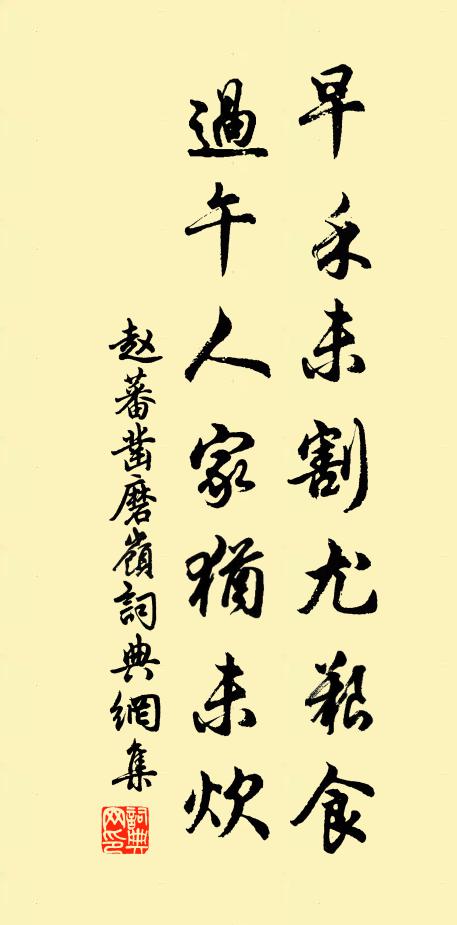 早禾未割尤艱食
過午人家猶未炊
赵蕃凿磨嶺詞典網集
詞典网印